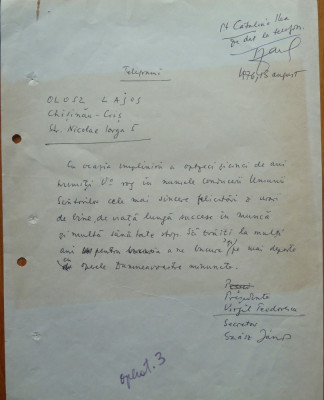 Pt Cătălina Ilea
și dat la telefon
1976, 18 august
Telegramă
OLOSZ LAJOS
Chișinău-Criș
Str. Nicolae Iorga 5
Cu ocazia împlinirii a optzeci și cinci de ani
primiți Vă rog în numele conducerii Uniunii
Scriitorilor cele mai sincere felicitări și urări
de bine, de viață lungă succese în muncă
și multă sănătate stop. Să trăiți la mulți
ani pentru a ne bucura și pe mai departe
de opera Dumneavoastră minunată.
Președinte
Virgil Teodorescu
Secretar
Szász János
opărit. 3